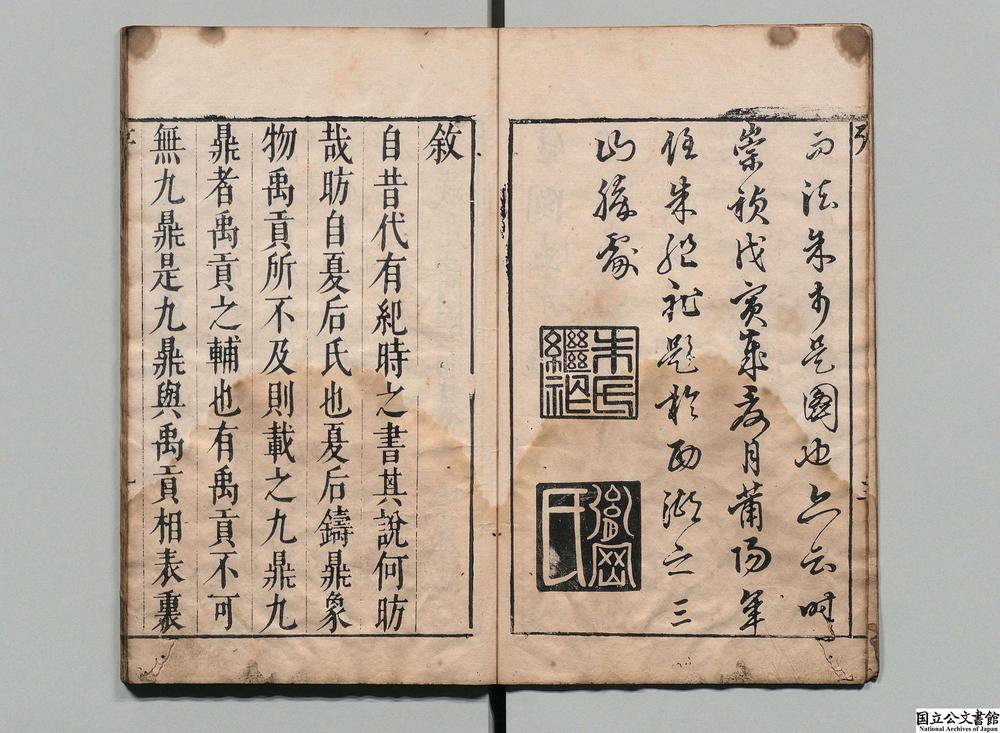 而法是圖也亦云時
崇禎戊寅歲月莆陽年
侄朱繼祚題於西湖之三
山勝處
朱氏繼祚
胤岡氏
敘
自昔代有紀時之書其說何昉
哉昉自夏后氏也夏后鑄鼎象
物禹貢所不及則載之九鼎九
鼎者禹貢之輔也有禹貢不可
無九鼎是九鼎與禹貢相表裏
国立公文書館
National Archives of Japan